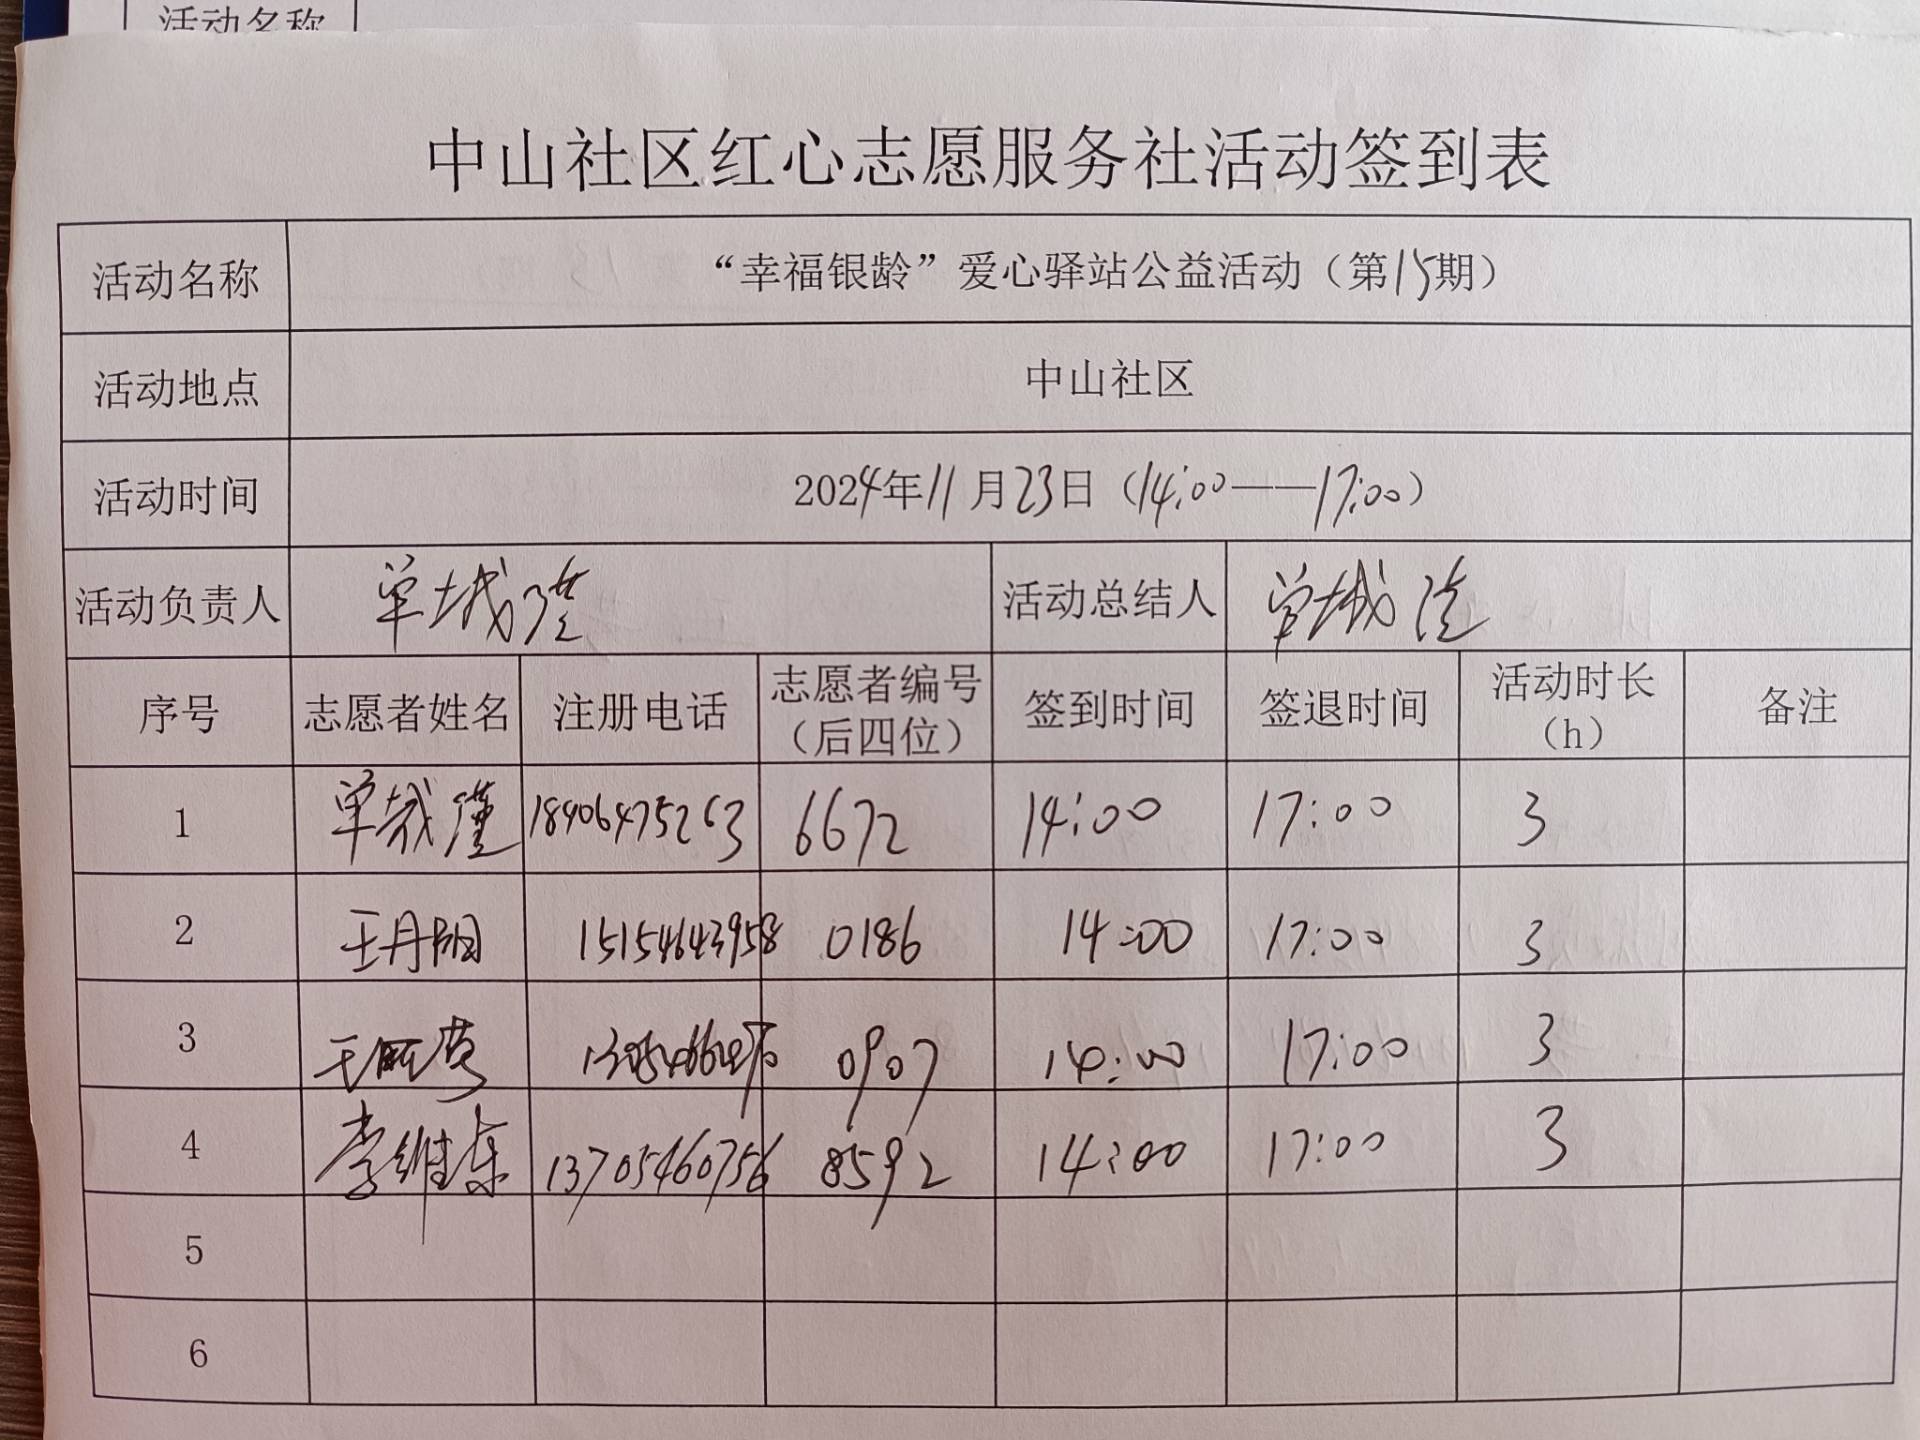 活动名称
中山社区红心志愿服务社活动签到表
活动名称 “幸福银龄”爱心驿站公益活动（第15期）
活动地点 中山社区
活动时间 2024年11月23日（14:00——17:00）
活动负责人 单城瑾 活动总结人 单城
序号 志愿者姓名 注册电话 志愿者编号（后四位） 签到时间 签退时间 活动时长（h） 备注
1 单城瑾 18406475263 6672 14:00 17:00 3
2 王丹阳 15154643958 0186 14:00 17:00 3
3 王 0907 14:00 17:00 3
4 李维东 13705460756 8592 14:00 17:00 3
5
6